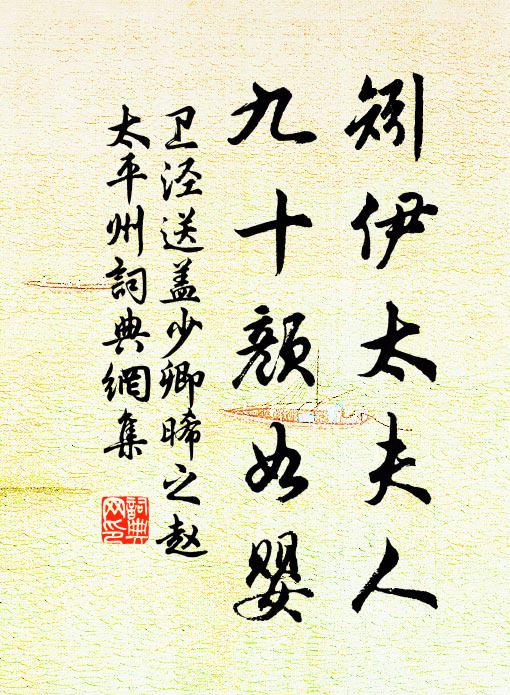 矧伊太夫人
九十颜如婴
卫泾送盖少卿晞之赵
太平州詞典網集
詞典网印